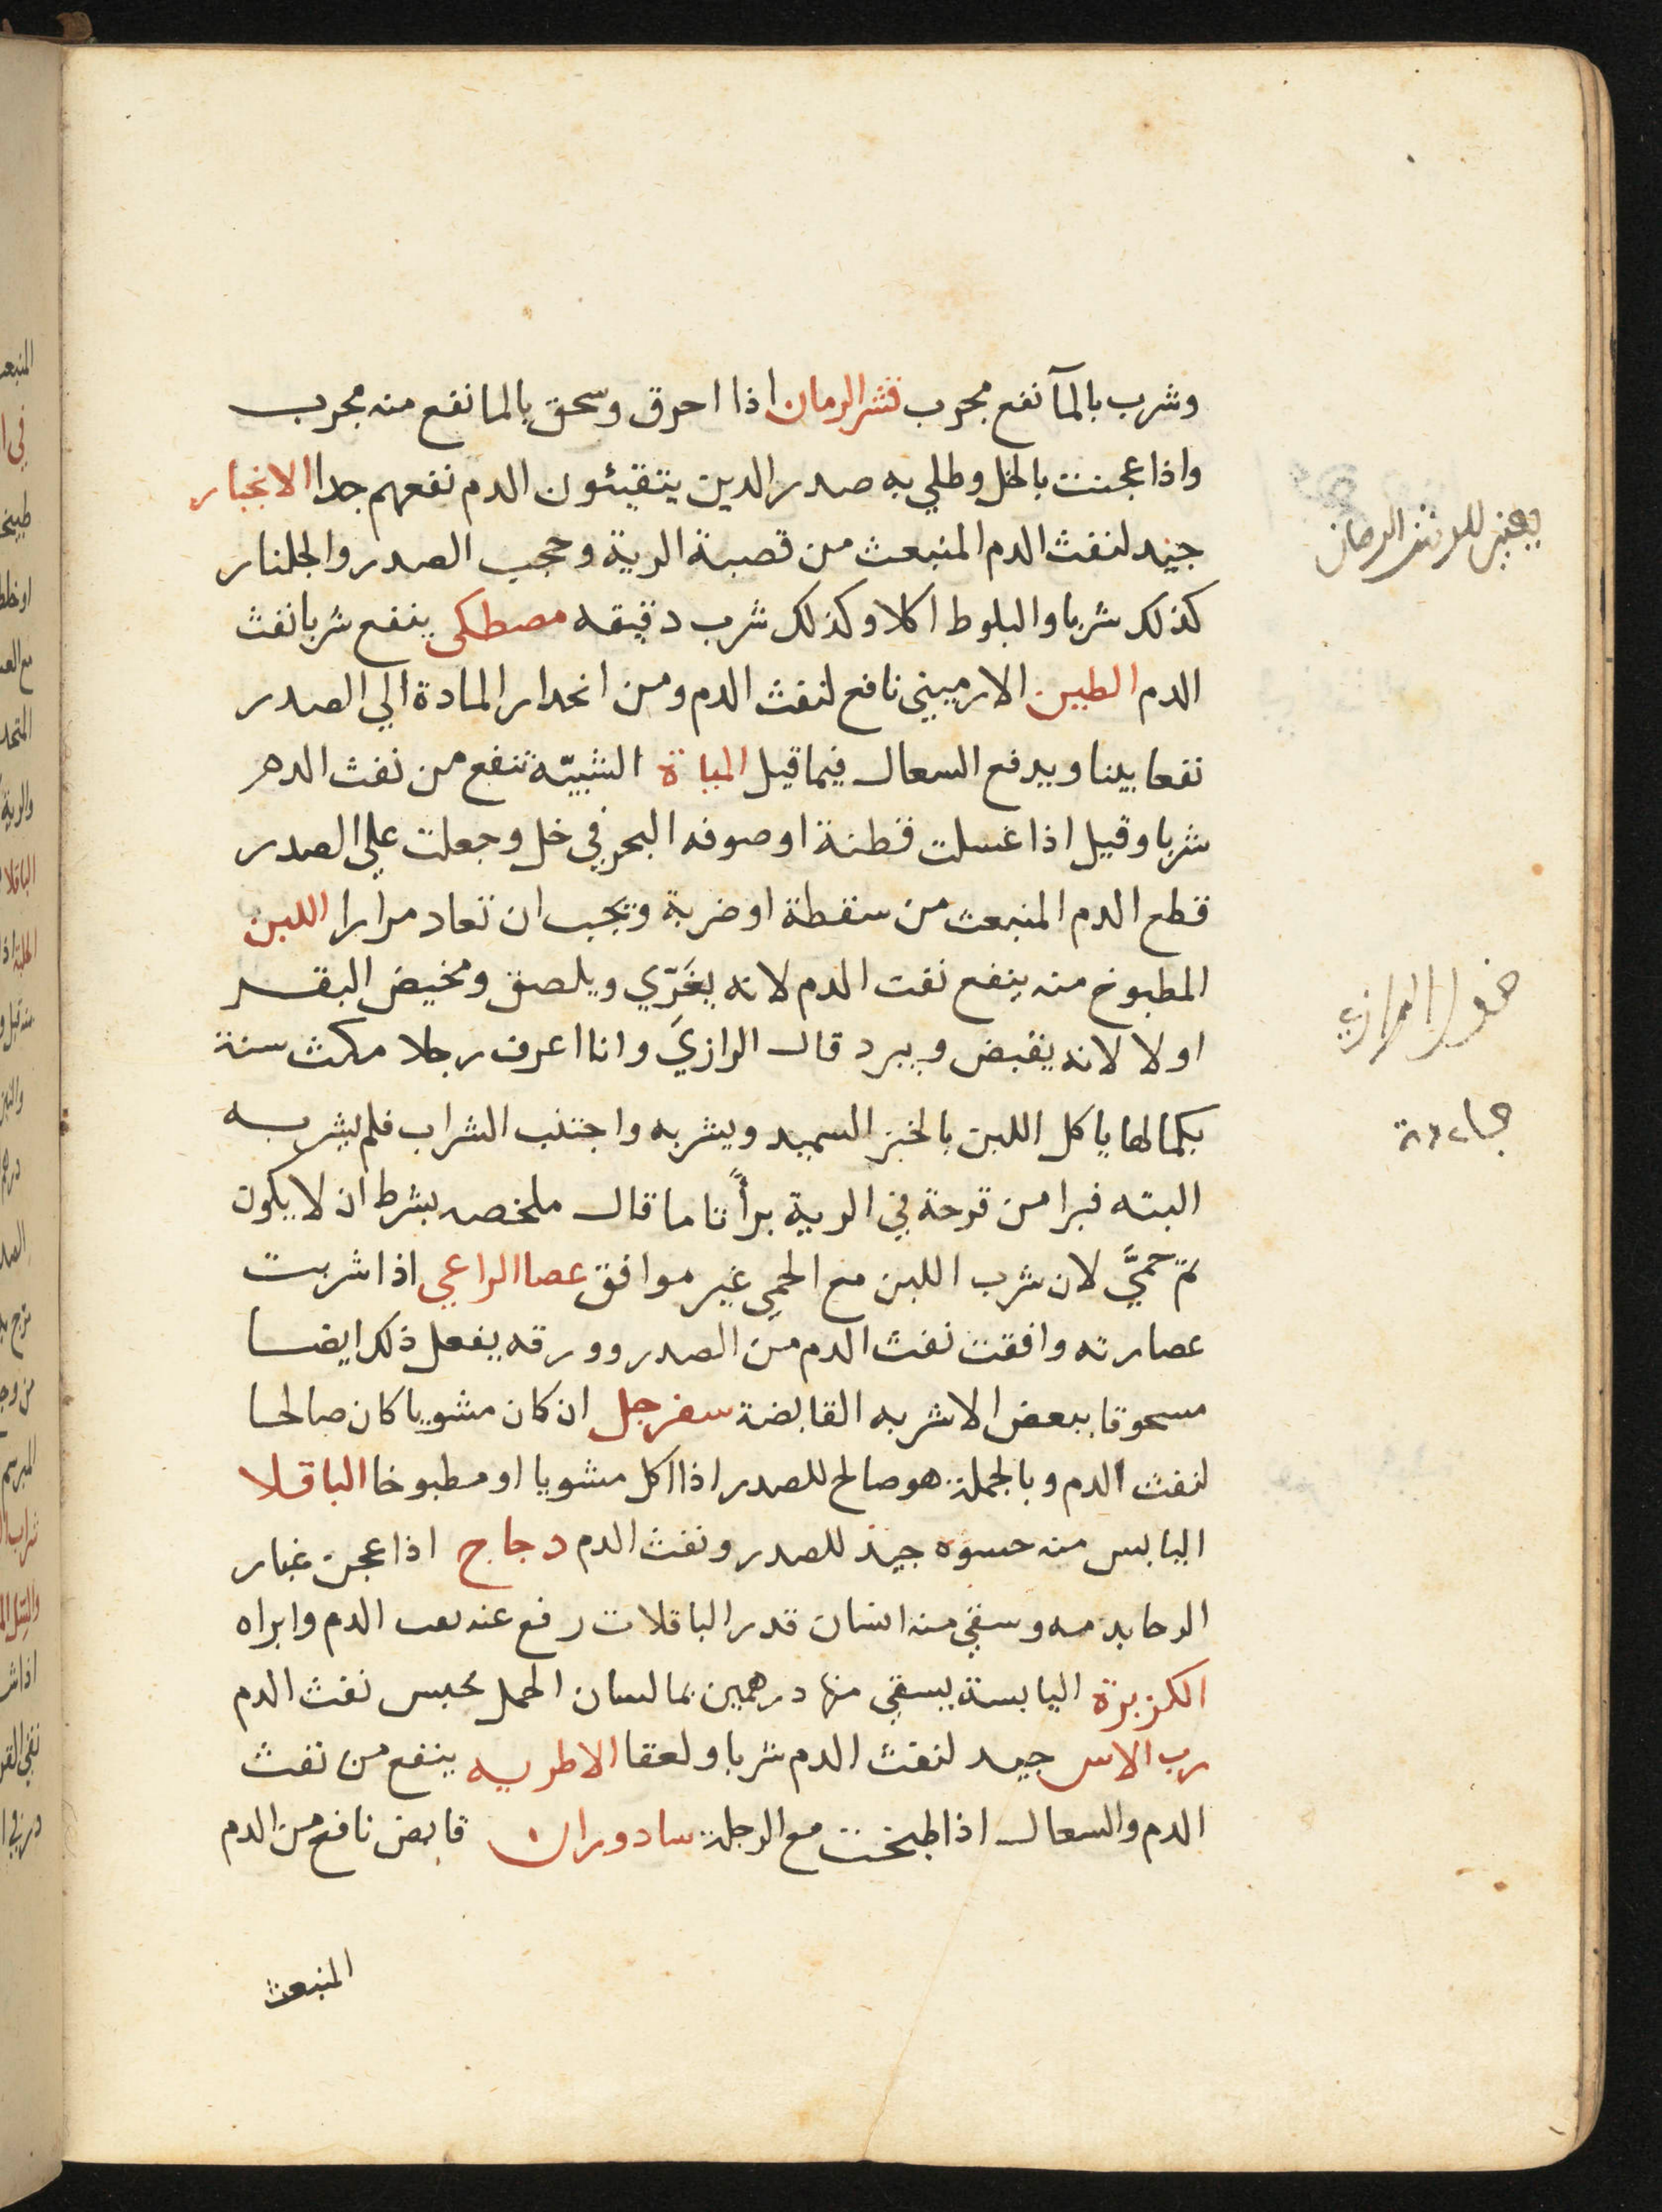 وشرب بالمآ نفع مجرب قشر الرمان اذا احرق وسحق بالما نفع منه مجرب
واذا عجنت بالخل وطلي به صدر الدين يتقيئون الدم نفعهم جدا الانجبار
جيد لنفث الدم المنبعث من قصبة الرية وحجب الصدر والجلنار
كذلك شربا والبلوط اكلا وكذلك شرب دقيقه مصطكى ينفع شربا نفث
الدم الطين الارميني نافع لنفث الدم ومن انحدار المادة الي الصدر
نفعا بينا ويدفع السعال فيما قيل المباة الشبيّة تنفع من نفث الدم
شربا وقيل اذا غسلت قطنة او صوفه البحر في خل وجعلت علي الصدر
قطع الدم المنبعث من سقطة او ضربة ويجب ان تعاد مرارا اللبن
المطبوخ منه ينفع نفت الدم لانه يغَرّي ويلصق ومخيض البقر
اولا لانه يقبض ويبرد قال الرازي وانا اعرف رجلا مكث سنة
بكمالها ياكل اللبن بالخبز السميد ويشربه واجتنب الشراب فلم يشربه
البته فبرا من قرحة في الرية برأً تاما قال ملخصه بشرط ان لا يكون
ثمّ حمّيَّ لان شرب اللبن مع الحمي غير موافق عصا الراعي اذا شربت
عصارته وافقت نفث الدم من الصدر وورقه يفعل ذلك ايضا
مسحوقا ببعض الاشربه القابضة سفرجل ان كان مشويا كان صالحا
لنفث الدم وبالجملة هو صالح للصدر اذا اكل مشويا او مطبوخا الباقلا
اليابس منه حسوه جيد للصدر ونفث الدم دجاج اذا عجن غبار
الرحا بدمه وسقي منه انسان قدر الباقلات رفع عنه الدم وابراه
الكزبرة اليابسة يسقي منها درهمين بما لسان الحمل يحبس نفث الدم
رب الاس جيد لنفث الدم شربا ولعقا الاطريه ينفع من نفث
الدم والسعال اذا طبخت مع الرجلة سادوران قابض نافع من الدم
المنبعث
قشر الرمان
الرازي